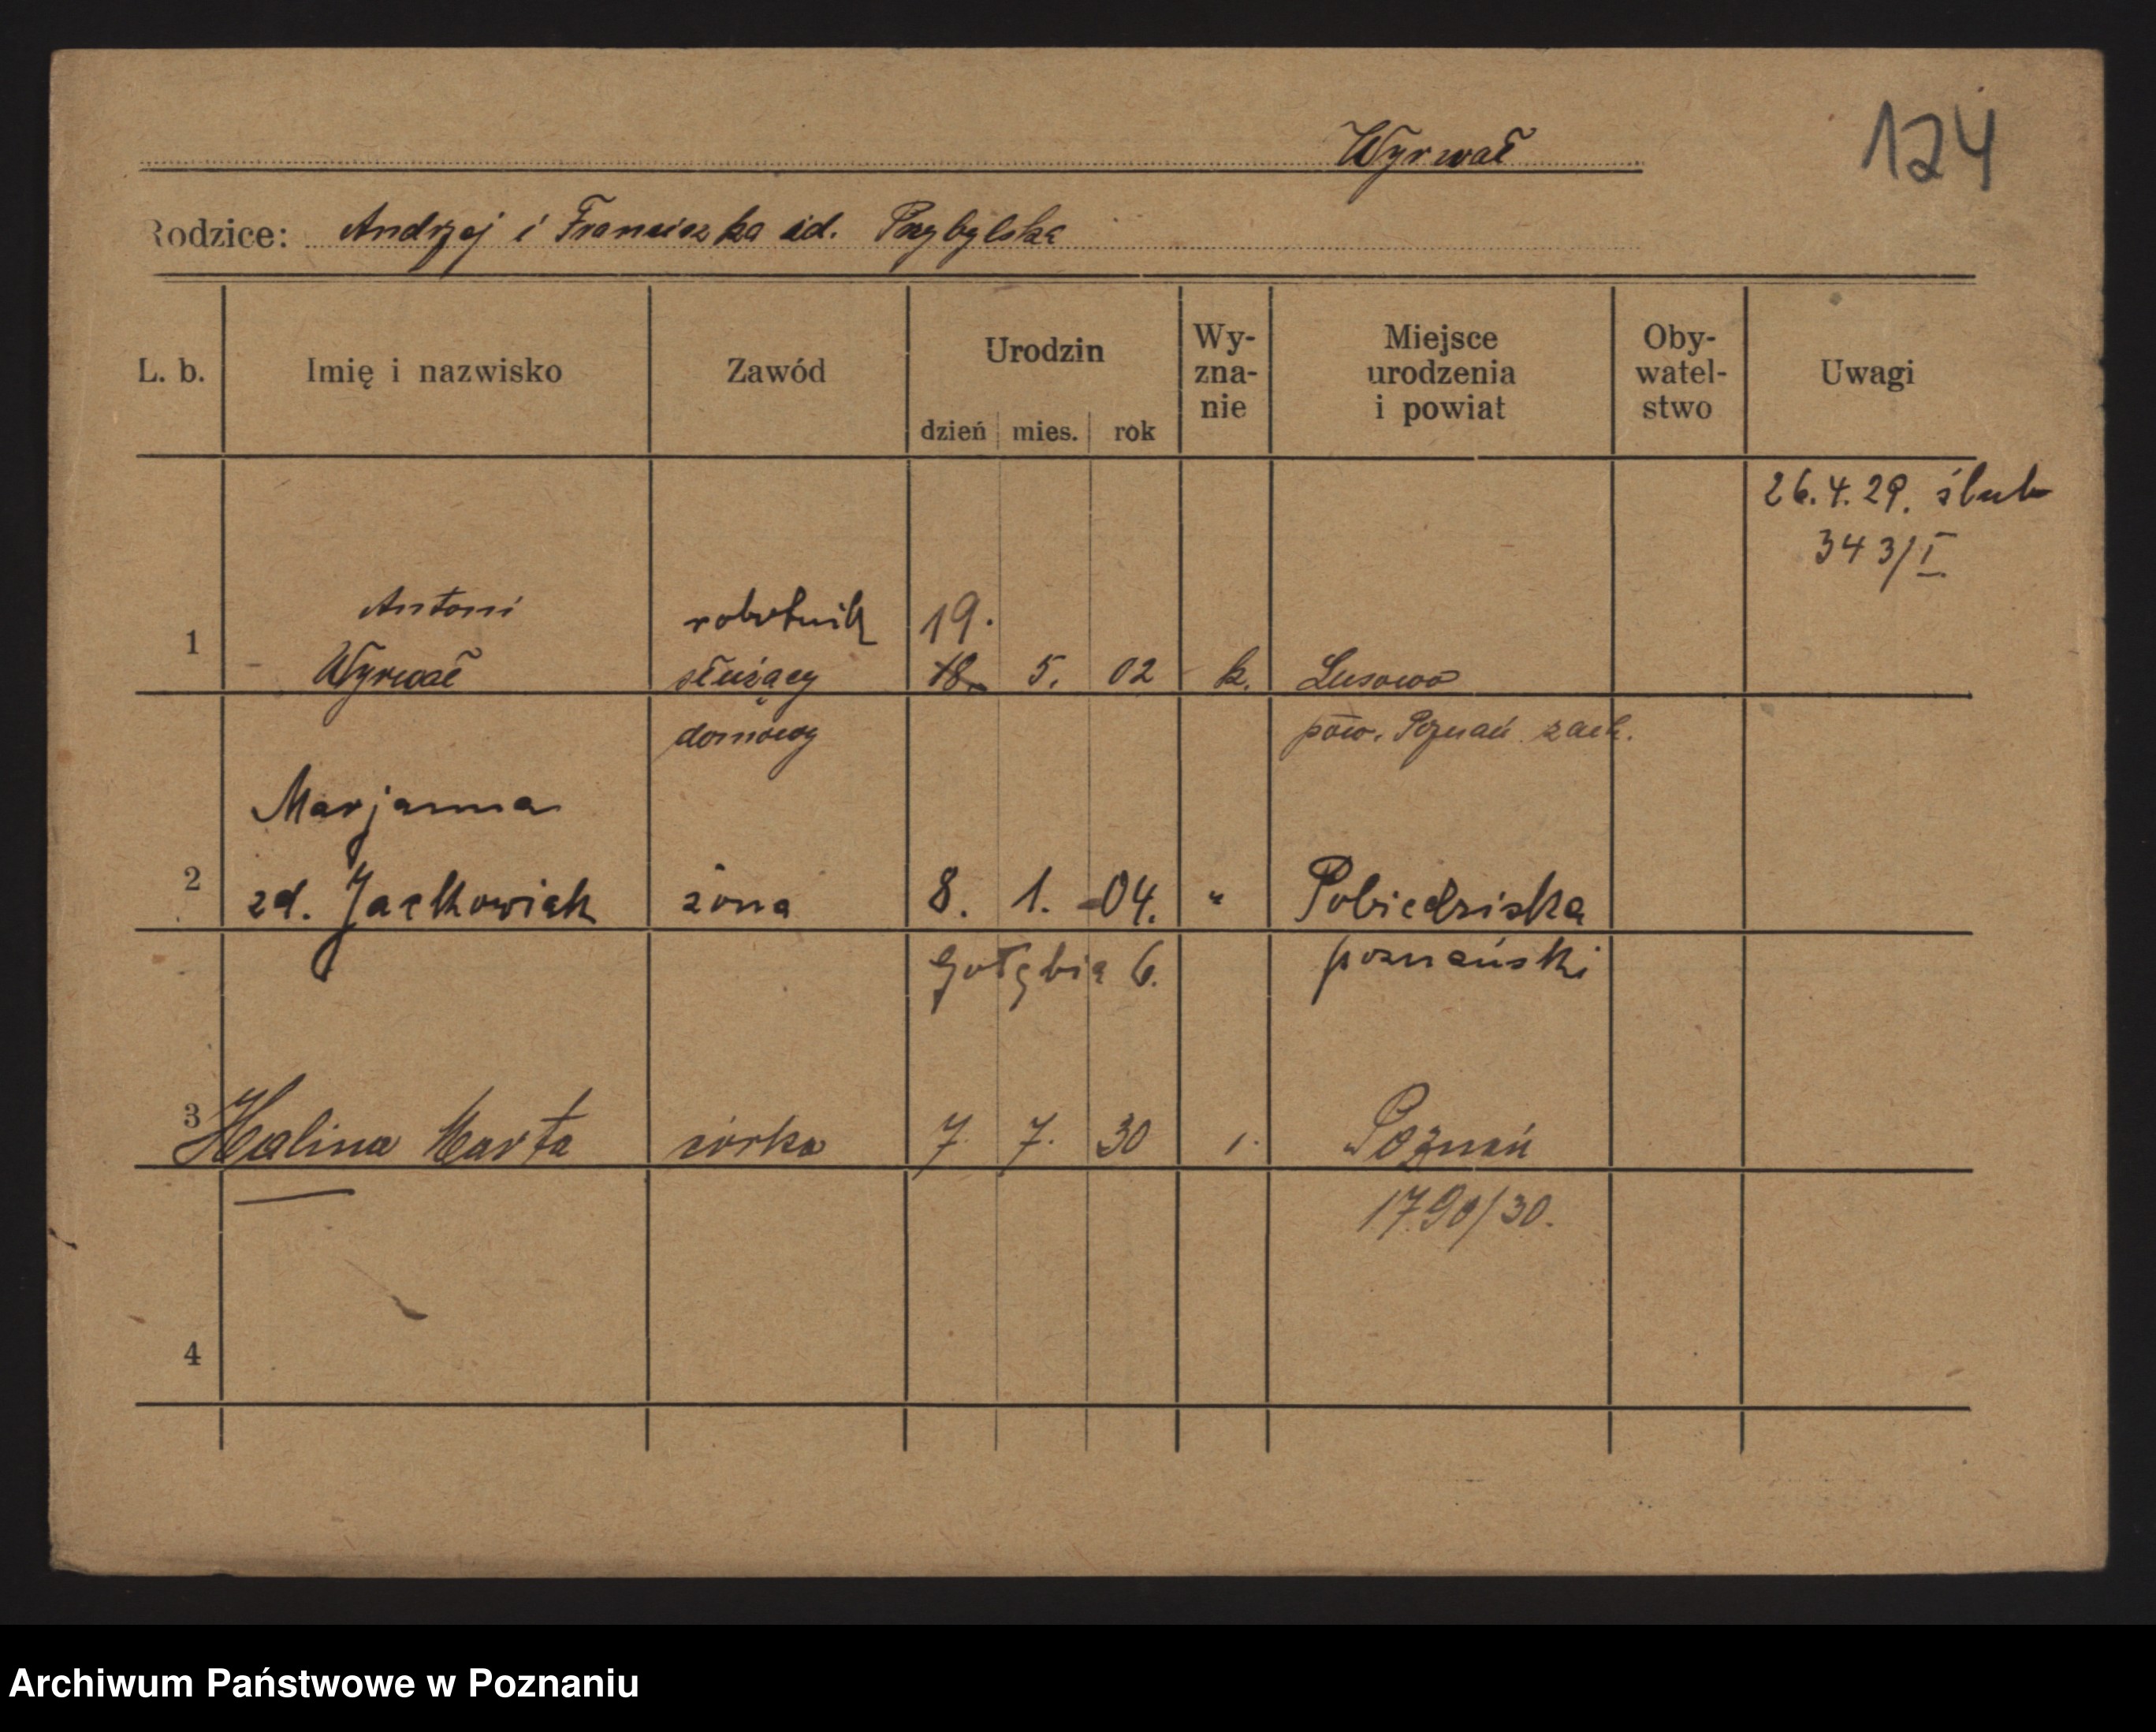 124
Wyrwał
Rodzice: Andrzej i Franciszka zd. Przybylska
L. b. Imię i nazwisko Zawód Urodzin dzień mies. rok Wy-zna-nie Miejsce urodzenia i powiat Oby-watel-stwo Uwagi
26.4.29. ślub
343/I
Antoni robotnik 19.
1 Wyrwał służący 18. 5. 02 k. Lusowo
domowy pow. Poznań zach.
Marjanna
2 zd. Jackowiak żona 8. 1. 04. " Pobiedziska
Gołębia 6. poznański
3 Halina Marta córka 7. 7. 30 Poznań
1790/30.
4
Archiwum Państwowe w Poznaniu